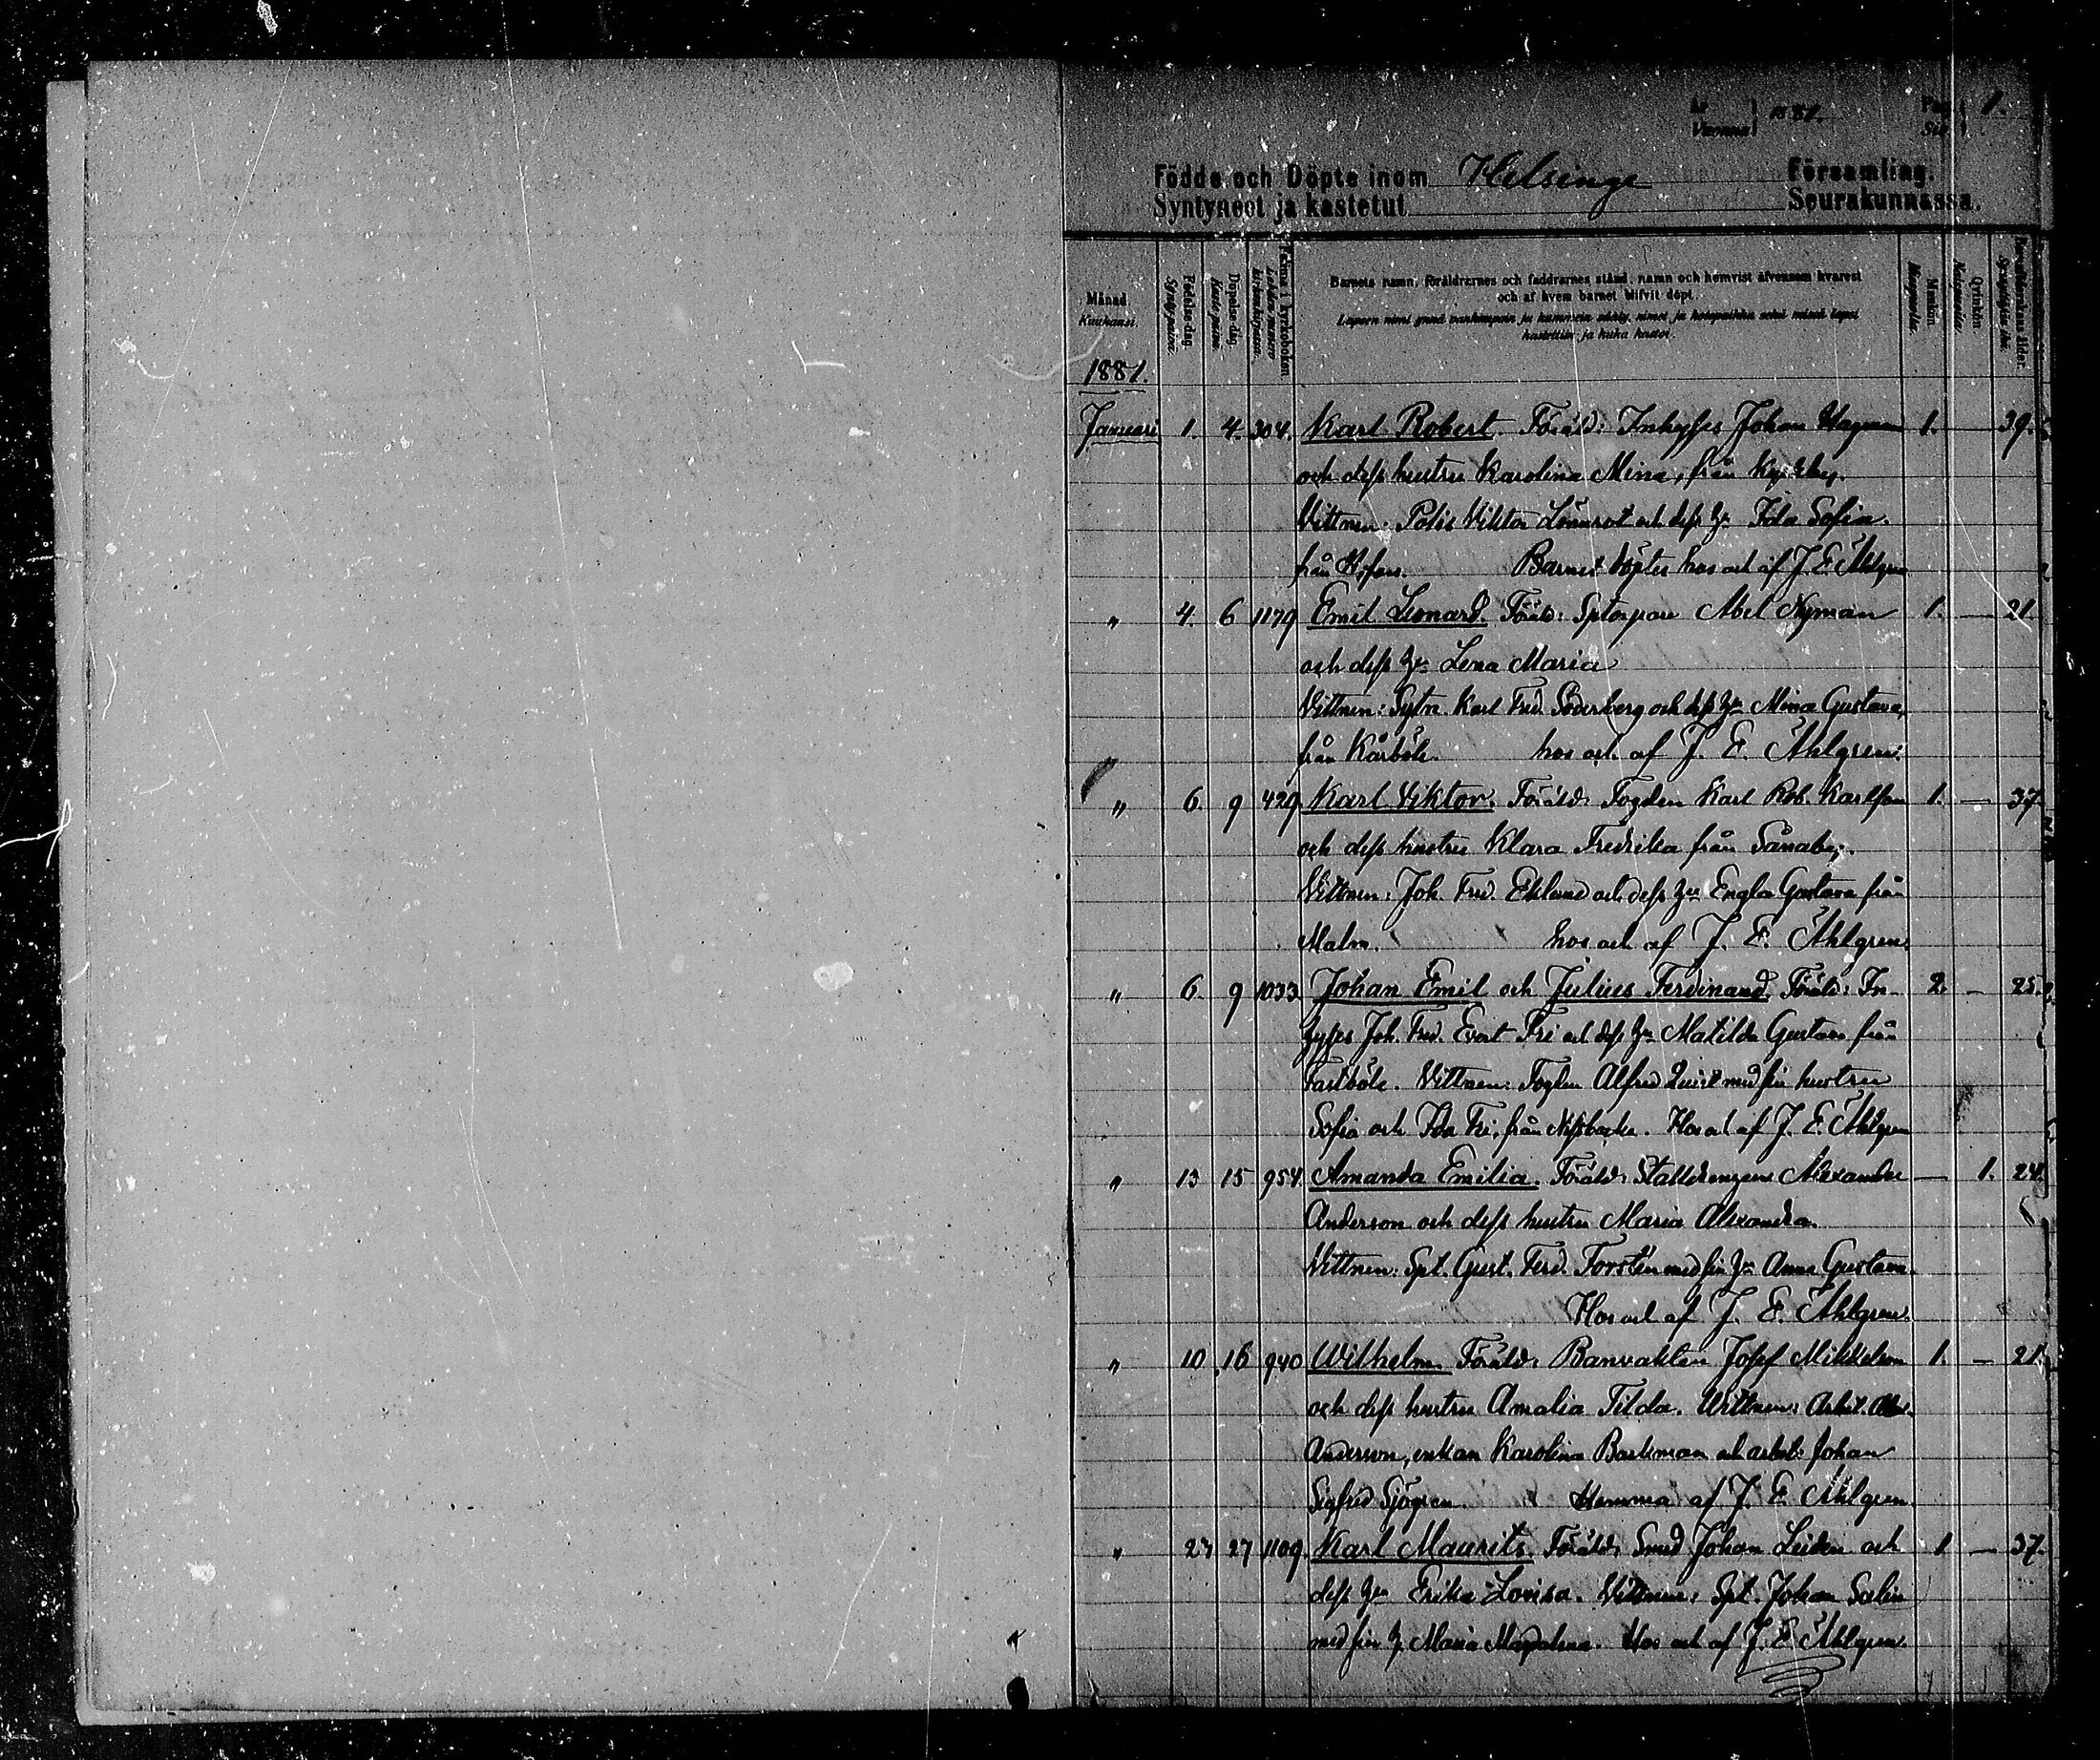 År Vuonna } 1881. Pag. Siv. } 1.
Födde och Döpte inom Helsinge Församling.
Syntyneet ja kastetut Seurakunnassa.
Månad. Kuukausi.
Födelse-dag. Syntymä-päivä.
Döpelse-dag. Kaste-päivä.
Barnets namn, föräldrarnes och faddrarnes stånd, namn och hemvist äfvensom hvarest
och af hvem barnet blifvit döpt.
Mankön. Miespuolia.
Qvinkön. Naispuolia.
1881.
Januari 1. 4. 304. Karl Robert. Föräld: Inhyses Johan Hagman 1. 39.
och dess hustru Karolina Mina, från
Vittnen: Polis Viktor Lönnrot och dess h:u Ida Sofia
från H:fors. Barnet döptes hos och af J. E. Åhlgren
" 4. 6 1179 Emil Leonard. Föräld: Sptorpare Abel Nyman 1. — 21.
och dess h:u Lena Maria
Vittnen: Sytn. Karl Fred. Söderberg och dess h:u Mina Gustava,
från Kårböle. hos och af J. E. Åhlgren.
" 6. 9 429 Karl Viktor. Föräld: Fogden Karl Rob. Karlsson 1. — 37.
och dess hustru Klara Fredrika från Dånaby.
Vittnen: Joh. Fred. Eklund och dess h:u Engla Gustava från
Malm. hos och af J. E. Åhlgren
" 6. 9 1033 Johan Emil och Julius Ferdinand. Föräld: In- 2. — 25.
hyses Joh. Fred. Evert Fri och dess h:u Matilda Gustava från
Fastböle. Vittnen: Fogden Alfred Qvist med sin hustru
Sofia och Ida Fri, från Nissbacka. Hos och af J. E. Åhlgren
" 13 15 954. Amanda Emilia. Föräld: Stalldrengen Alexander — 1. 24.
Anderson och dess hustru Maria Alexandra.
Vittnen: Spt. Gust. Ferd. Forstén med sin h:u Anna Gustava.
Hos och af J. E. Åhlgren.
" 10 16 940 Wilhelm. Föräld: Banvakten Josef Mikkelson 1. — 21.
och dess hustru Amalia Tilda. Vittnen: Arbet.
Anderson, enkan Karolina Backman och arbet: Johan
Sigfrid Sjögren. Hemma af J. E. Åhlgren.
" 27 1109. Karl Maurits. Föräld: Smed Johan och 1 — 37.
dess h:u Erika Lovisa. Vittnen: Spt. Johan Salin
med sin h. Maria Magdalena. Hos och af J. E. Åhlgren.